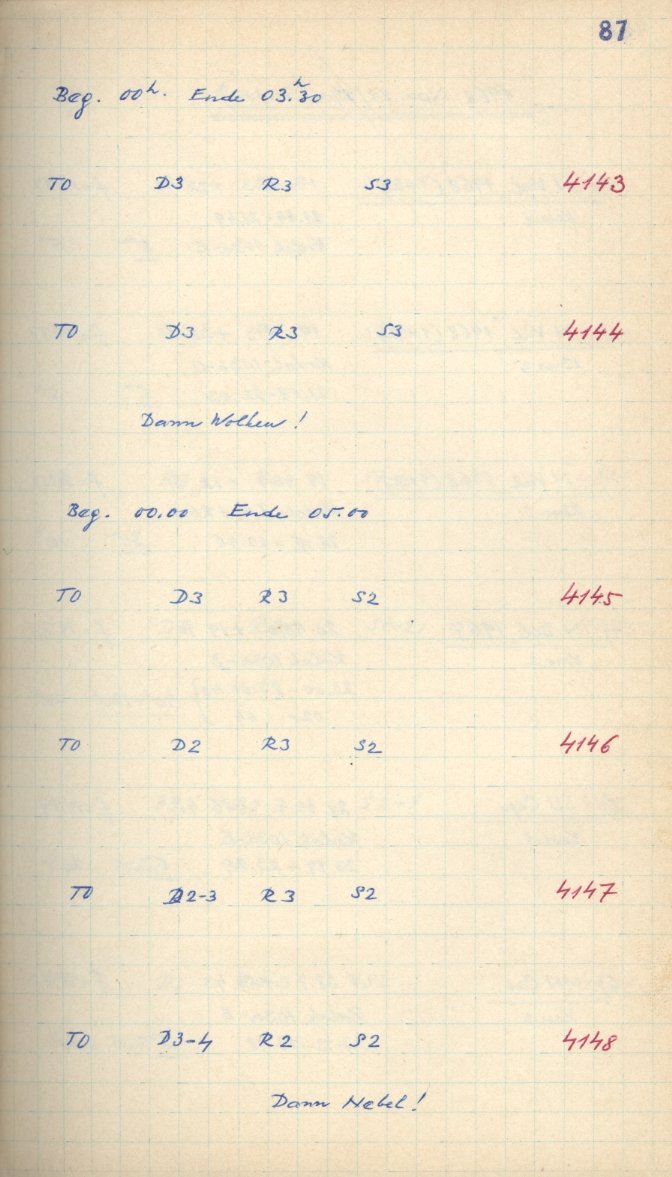 87
Beg. 00h. Ende 03.h30
TO D3 R3 S3 4143
TO D3 R3 S3 4144
Dann Wolken!
Beg. 00.00 Ende 05.00
TO D3 R3 S2 4145
TO D2 R3 S2 4146
TO D2-3 R3 S2 4147
TO D3-4 R2 S2 4148
Dann Nebel!